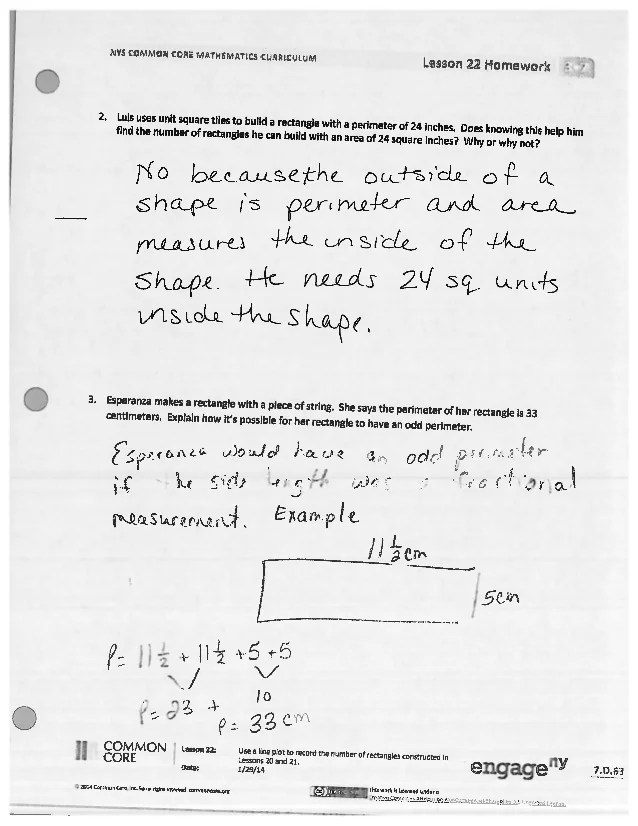 NYS COMMON CORE MATHEMATICS CURRICULUM
Lesson 22 Homework
2. Luis uses unit square tiles to build a rectangle with a perimeter of 24 inches. Does knowing this help him
find the number of rectangles he can build with an area of 24 square inches? Why or why not?
No because the outside of a
shape is perimeter and area
measures the inside of the
shape. He needs 24 sq. units
inside the shape.
3. Esperanza makes a rectangle with a piece of string. She says the perimeter of her rectangle is 33
centimeters. Explain how it's possible for her rectangle to have an odd perimeter.
Esperanza would have an odd perimeter
if the side length was a fractional
measurement. Example
11 1/2 cm
5cm
P= 11 1/2 + 11 1/2 + 5 + 5
P= 23 + 10
P= 33 cm
COMMON
CORE
Lesson 22:
Use a line plot to record the number of rectangles constructed in
Lessons 20 and 21.
Date:
1/29/14
engage ny
7.D.63
© 2014 Common Core, Inc. Some rights reserved. commoncore.org
This work is licensed under a